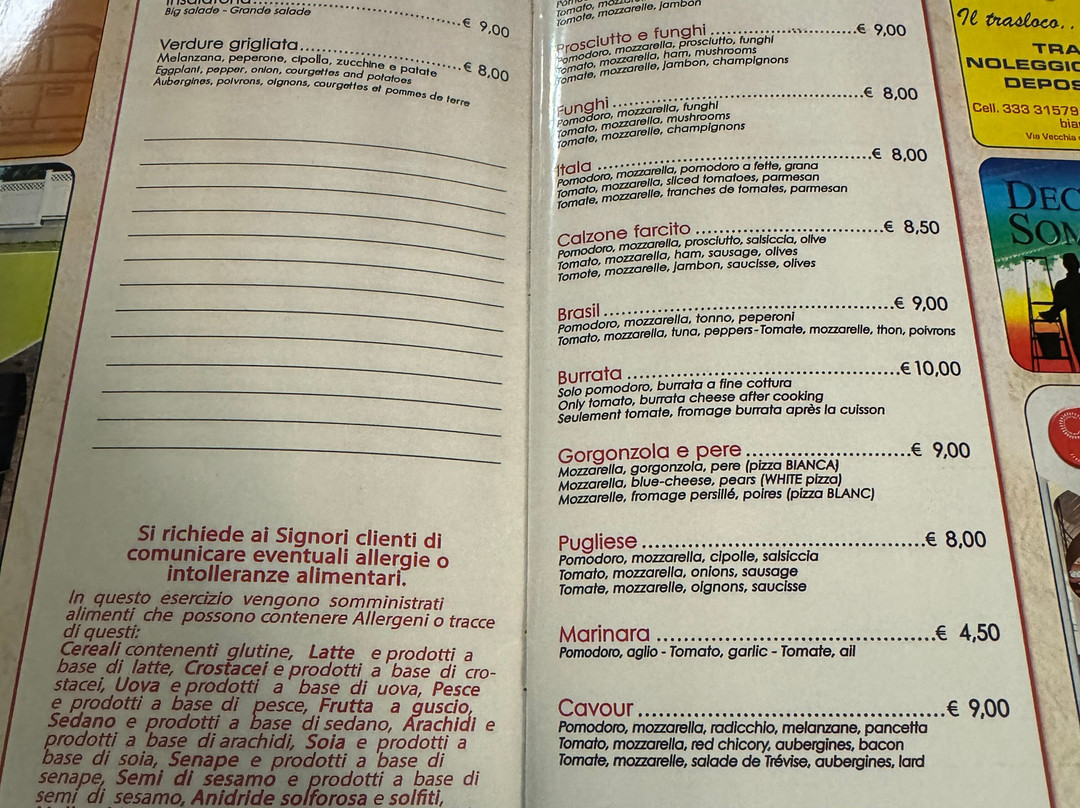 Big salade - Grande salade
€ 9,00
Verdure grigliata....................€ 8,00
Melanzana, peperone, cipolla, zucchine e patate
Eggplant, pepper, onion, courgettes and potatoes
Aubergines, poivrons, oignons, courgettes et pommes de terre
Si richiede ai Signori clienti di
comunicare eventuali allergie o
intolleranze alimentari.
In questo esercizio vengono somministrati
alimenti che possono contenere Allergeni o tracce
di questi:
Cereali contenenti glutine, Latte e prodotti a
base di latte, Crostacei e prodotti a base di cro-
stacei, Uova e prodotti a base di uova, Pesce
e prodotti a base di pesce, Frutta a guscio,
Sedano e prodotti a base di sedano, Arachidi e
prodotti a base di arachidi, Soia e prodotti a
base di soia, Senape e prodotti a base di
senape, Semi di sesamo e prodotti a base di
semi di sesamo, Anidride solforosa e solfiti,
Tomate, mozzarelle, jambon
Prosciutto e funghi ..........................€ 9,00
Pomodoro, mozzarella, prosciutto, funghi
Tomato, mozzarella, ham, mushrooms
Tomate, mozzarelle, jambon, champignons
Funghi ..........................................€ 8,00
Pomodoro, mozzarella, funghi
Tomato, mozzarella, mushrooms
Tomate, mozzarelle, champignons
Itala ..............................................€ 8,00
Pomodoro, mozzarella, pomodoro a fette, grana
Tomato, mozzarella, sliced tomatoes, parmesan
Tomate, mozzarelle, tranches de tomates, parmesan
Calzone farcito ................................€ 8,50
Pomodoro, mozzarella, prosciutto, salsiccia, olive
Tomato, mozzarella, ham, sausage, olives
Tomote, mozzarelle, jambon, saucisse, olives
Brasil ..............................................€ 9,00
Pomodoro, mozzarella, tonno, peperoni
Tomato, mozzarella, tuna, peppers-Tomate, mozzarelle, thon, poivrons
Burrata ..............................................€ 10,00
Solo pomodoro, burrata a fine cottura
Only tomato, burrata cheese after cooking
Seulement tomate, fromage burrata après la cuisson
Gorgonzola e pere ............................€ 9,00
Mozzarella, gorgonzola, pere (pizza BIANCA)
Mozzarella, blue-cheese, pears (WHITE pizza)
Mozzarelle, fromage persillé, poires (pizza BLANC)
Pugliese ..............................................€ 8,00
Pomodoro, mozzarella, cipolle, salsiccia
Tomato, mozzarella, onions, sausage
Tomate, mozzarelle, oignons, saucisse
Marinara ..............................................€ 4,50
Pomodoro, aglio - Tomato, garlic - Tomate, ail
Cavour ..............................................€ 9,00
Pomodoro, mozzarella, radicchio, melanzane, pancetta
Tomato, mozzarella, red chicory, aubergines, bacon
Tomate, mozzarelle, salade de Trévise, aubergines, lard
Il trasloco..
TRA
NOLEGGIO
DEPOS
Cell. 333 31579
bia
Via Vecchia
DEC
SOM